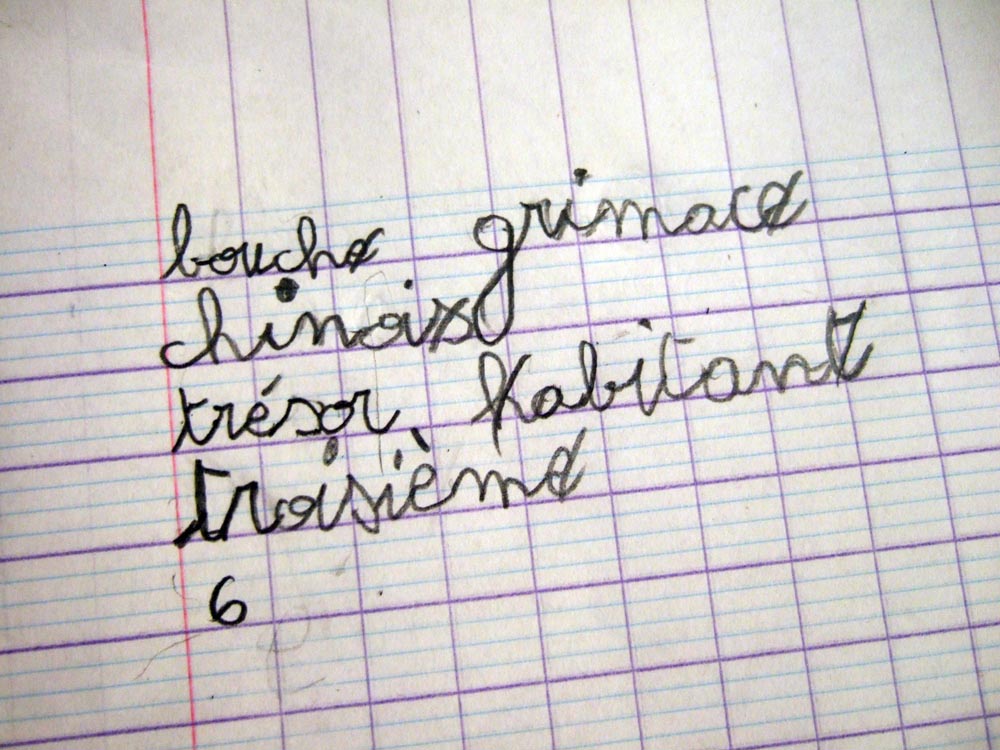 bouche grimace
chinois
trésor habitant
troisième
6